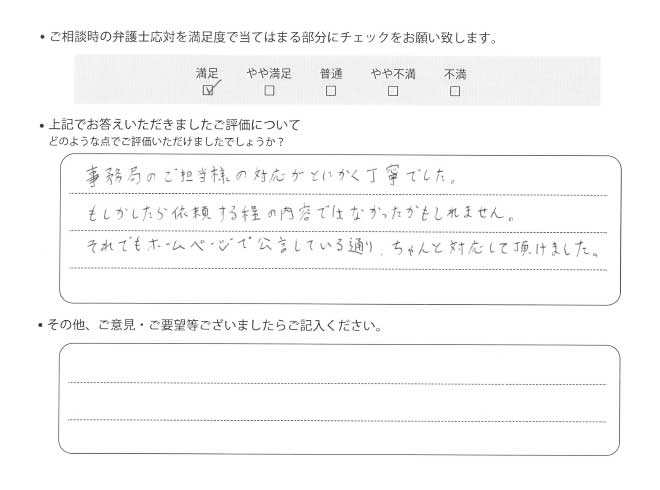 • ご相談時の弁護士応対を満足度で当てはまる部分にチェックをお願い致します。
満足 やや満足 普通 やや不満 不満
☑ □ □ □ □
• 上記でお答えいただきましたご評価について
どのような点でご評価いただけましたでしょうか？
事務局のご担当様の対応がとにかく丁寧でした。
もしかしたら依頼する程の内容ではなかったかもしれません。
それでもホームページで公言している通り、ちゃんと対応して頂けました。
• その他、ご意見・ご要望等ございましたらご記入ください。